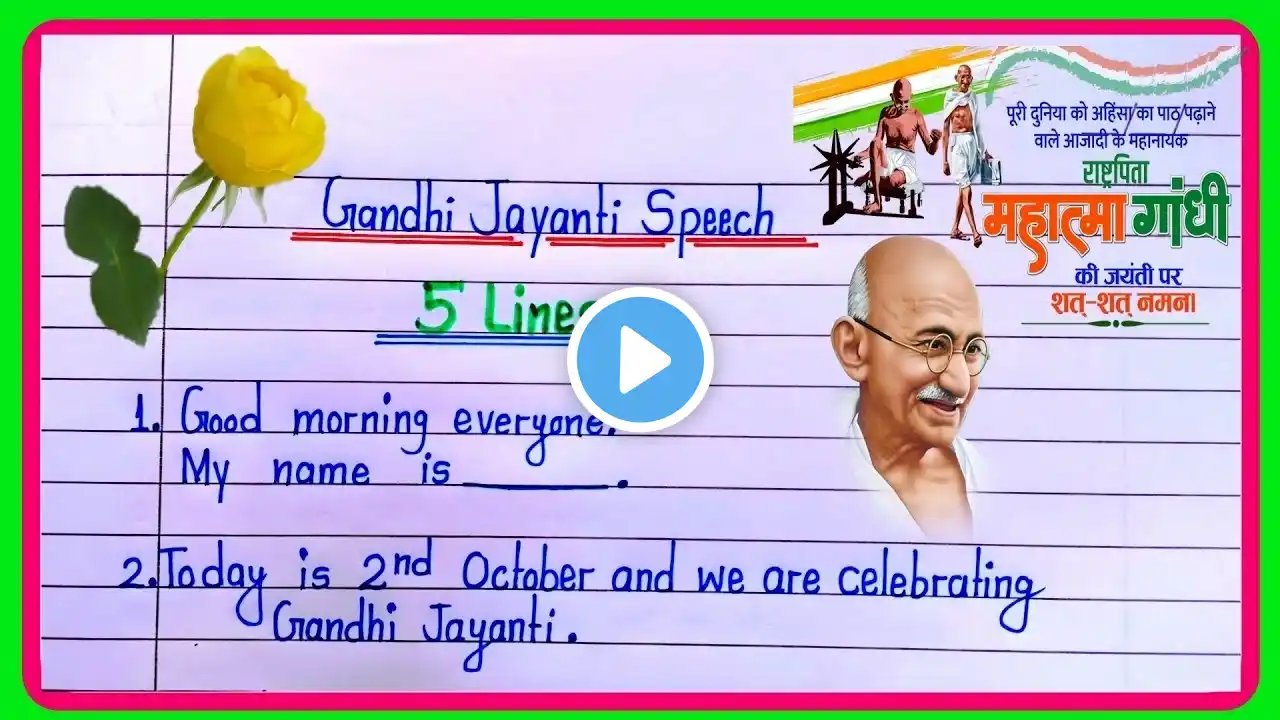 Gandhi Jayanti Speech
5 Lines
1. Good morning everyone.
My name is ______.
2. Today is 2nd October and we are celebrating
Gandhi Jayanti.
पूरी दुनिया को अहिंसा का पाठ पढ़ाने
वाले आजादी के महानायक
राष्ट्रपिता
महात्मा गांधी
की जयंती पर
शत्-शत् नमन।